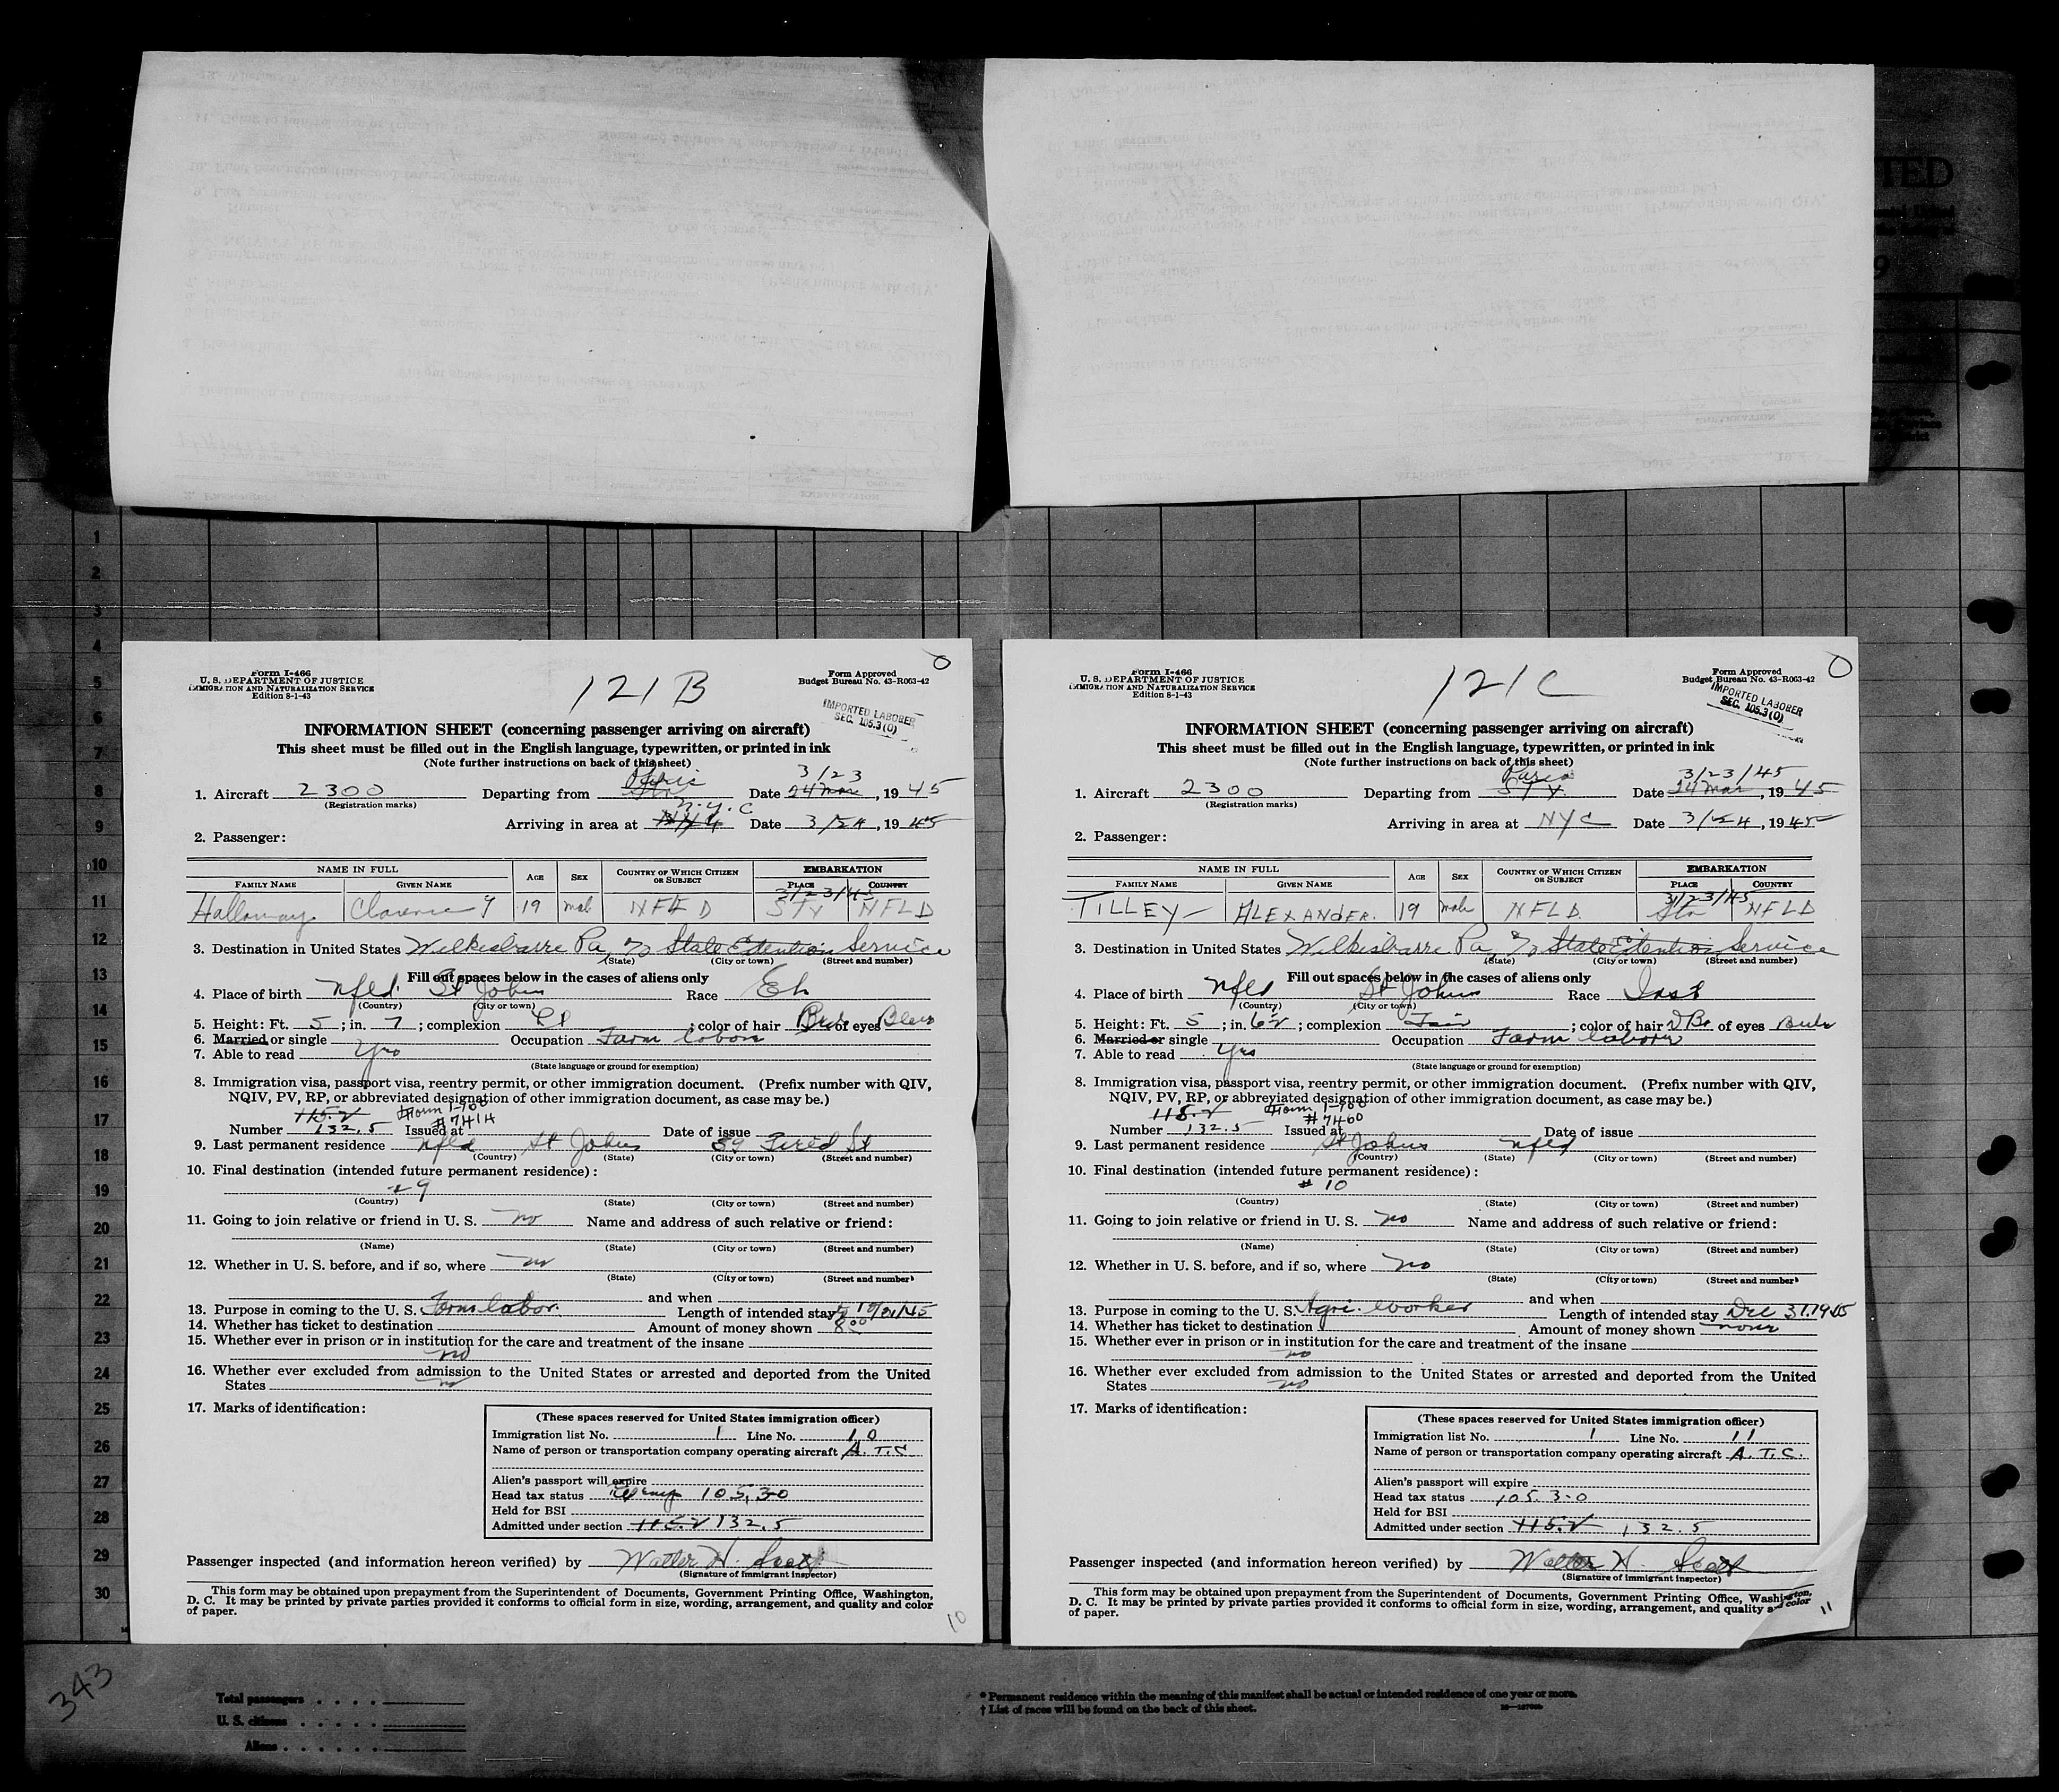 TED
9
1
2
3
4
5
6
7
8
9
10
11
12
13
14
15
16
17
18
19
20
21
22
23
24
25
26
27
28
29
30
Form I-466
U. S. DEPARTMENT OF JUSTICE
IMMIGRATION AND NATURALIZATION SERVICE
Edition 8-1-43
121 B
Form Approved
Budget Bureau No. 43-R063-42
IMPORTED LABORER
SEC. 105.3(0)
INFORMATION SHEET (concerning passenger arriving on aircraft)
This sheet must be filled out in the English language, typewritten, or printed in ink
(Note further instructions on back of this sheet)
3/23
1. Aircraft 2300 Departing from Date 24 Mar, 1945
(Registration marks)
N.Y.C
Arriving in area at Date 3/24, 1945
2. Passenger:
NAME IN FULL AGE SEX COUNTRY OF WHICH CITIZEN OR SUBJECT EMBARKATION
FAMILY NAME GIVEN NAME PLACE COUNTRY
3/23/45
Halloway Clarence 19 male NFLD STV NFLD
3. Destination in United States Wilkesbarre Pa, % State Extention Service
(State) (City or town) (Street and number)
Fill out spaces below in the cases of aliens only
4. Place of birth Nfld. St Johns Race
(Country) (City or town)
5. Height: Ft. 5; in. 7; complexion ; color of hair of eyes
6. Married or single Occupation Farm labor
7. Able to read Yes
(State language or ground for exemption)
8. Immigration visa, passport visa, reentry permit, or other immigration document. (Prefix number with QIV,
NQIV, PV, RP, or abbreviated designation of other immigration document, as case may be.)
115.2 Form I-700
# 7414
Number 132.5 Issued at Date of issue
9. Last permanent residence Nfld St Johns 89 St
(Country) (State) (City or town) (Street and number)
10. Final destination (intended future permanent residence):
(Country) (State) (City or town) (Street and number)
11. Going to join relative or friend in U. S. no Name and address of such relative or friend:
(Name) (State) (City or town) (Street and number)
12. Whether in U. S. before, and if so, where no
(State) (City or town) (Street and number)
and when
13. Purpose in coming to the U. S. Farm labor. Length of intended stay
14. Whether has ticket to destination Amount of money shown 8.00
15. Whether ever in prison or in institution for the care and treatment of the insane
no
16. Whether ever excluded from admission to the United States or arrested and deported from the United
States no
17. Marks of identification:
(These spaces reserved for United States immigration officer)
Immigration list No. 1 Line No. 10
Name of person or transportation company operating aircraft A. T. C
Alien's passport will expire
Head tax status 105.3-0
Held for BSI
Admitted under section 115.2 132.5
Passenger inspected (and information hereon verified) by Walter H. Scott
(Signature of Immigrant Inspector)
This form may be obtained upon prepayment from the Superintendent of Documents, Government Printing Office, Washington,
D. C. It may be printed by private parties provided it conforms to official form in size, wording, arrangement, and quality and color
of paper.
10
Form I-466
U. S. DEPARTMENT OF JUSTICE
IMMIGRATION AND NATURALIZATION SERVICE
Edition 8-1-43
121 C
Form Approved
Budget Bureau No. 43-R063-42
IMPORTED LABORER
SEC. 105.3(0)
INFORMATION SHEET (concerning passenger arriving on aircraft)
This sheet must be filled out in the English language, typewritten, or printed in ink
(Note further instructions on back of this sheet)
3/23/45
1. Aircraft 2300 Departing from STV. Date 24 Mar, 1945
(Registration marks)
Arriving in area at NYC Date 3/24, 1945
2. Passenger:
NAME IN FULL AGE SEX COUNTRY OF WHICH CITIZEN OR SUBJECT EMBARKATION
FAMILY NAME GIVEN NAME PLACE COUNTRY
3/23/45
TILLEY ALEXANDER. 19 male NFLD. NFLD
3. Destination in United States Wilkesbarre Pa, % State Extention Service
(State) (City or town) (Street and number)
Fill out spaces below in the cases of aliens only
4. Place of birth Nfld St Johns Race
(Country) (City or town)
5. Height: Ft. 5; in. ; complexion Fair; color of hair of eyes
6. Married or single Occupation Farm laborer
7. Able to read Yes
(State language or ground for exemption)
8. Immigration visa, passport visa, reentry permit, or other immigration document. (Prefix number with QIV,
NQIV, PV, RP, or abbreviated designation of other immigration document, as case may be.)
115.2 Form I-700
# 7460
Number 132.5 Issued at Date of issue
9. Last permanent residence St Johns Nfld
(Country) (State) (City or town) (Street and number)
10. Final destination (intended future permanent residence):
# 10
(Country) (State) (City or town) (Street and number)
11. Going to join relative or friend in U. S. no Name and address of such relative or friend:
(Name) (State) (City or town) (Street and number)
12. Whether in U. S. before, and if so, where no
(State) (City or town) (Street and number)
and when
13. Purpose in coming to the U. S. Agri. worker Length of intended stay Dec 31.1945
14. Whether has ticket to destination Amount of money shown none
15. Whether ever in prison or in institution for the care and treatment of the insane
no
16. Whether ever excluded from admission to the United States or arrested and deported from the United
States no
17. Marks of identification:
(These spaces reserved for United States immigration officer)
Immigration list No. 1 Line No. 11
Name of person or transportation company operating aircraft A. T. C.
Alien's passport will expire
Head tax status 105.3-0
Held for BSI
Admitted under section 115.2 132.5
Passenger inspected (and information hereon verified) by Walter H. Scott
(Signature of Immigrant Inspector)
This form may be obtained upon prepayment from the Superintendent of Documents, Government Printing Office, Washington,
D. C. It may be printed by private parties provided it conforms to official form in size, wording, arrangement, and quality and color
of paper.
11
343
Total passengers
U. S. citizens
Aliens
* Permanent residence within the meaning of this manifest shall be actual or intended residence of one year or more.
† List of races will be found on the back of this sheet.